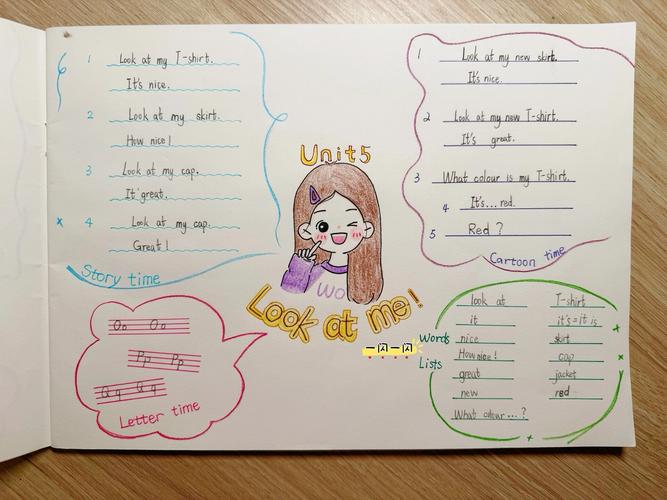 1 Look at my T-shirt.
It's nice.
2 Look at my skirt.
How nice!
3 Look at my cap.
It' great.
4 Look at my cap.
Great!
Story time
Unit5
WO
Look at me!
一闪一闪
1 Look at my new skirt.
It's nice.
2 Look at my new T-shirt.
It's great.
3 What colour is my T-shirt.
4 It's...red.
5 Red?
Cartoon time
Oo Oo
Pp Pp
Qq Qq
Letter time
Words
Lists
look at T-shirt
it it's=it is
nice skirt
How nice! cap
great jacket
new red
What colour...?